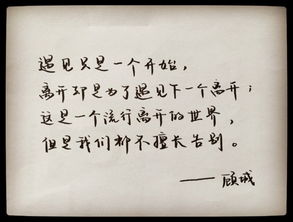 遇见只是一个开始，
离开却是为了遇见下一个离开；
这是一个流行离开的世界，
但是我们都不擅长告别。
——顾城